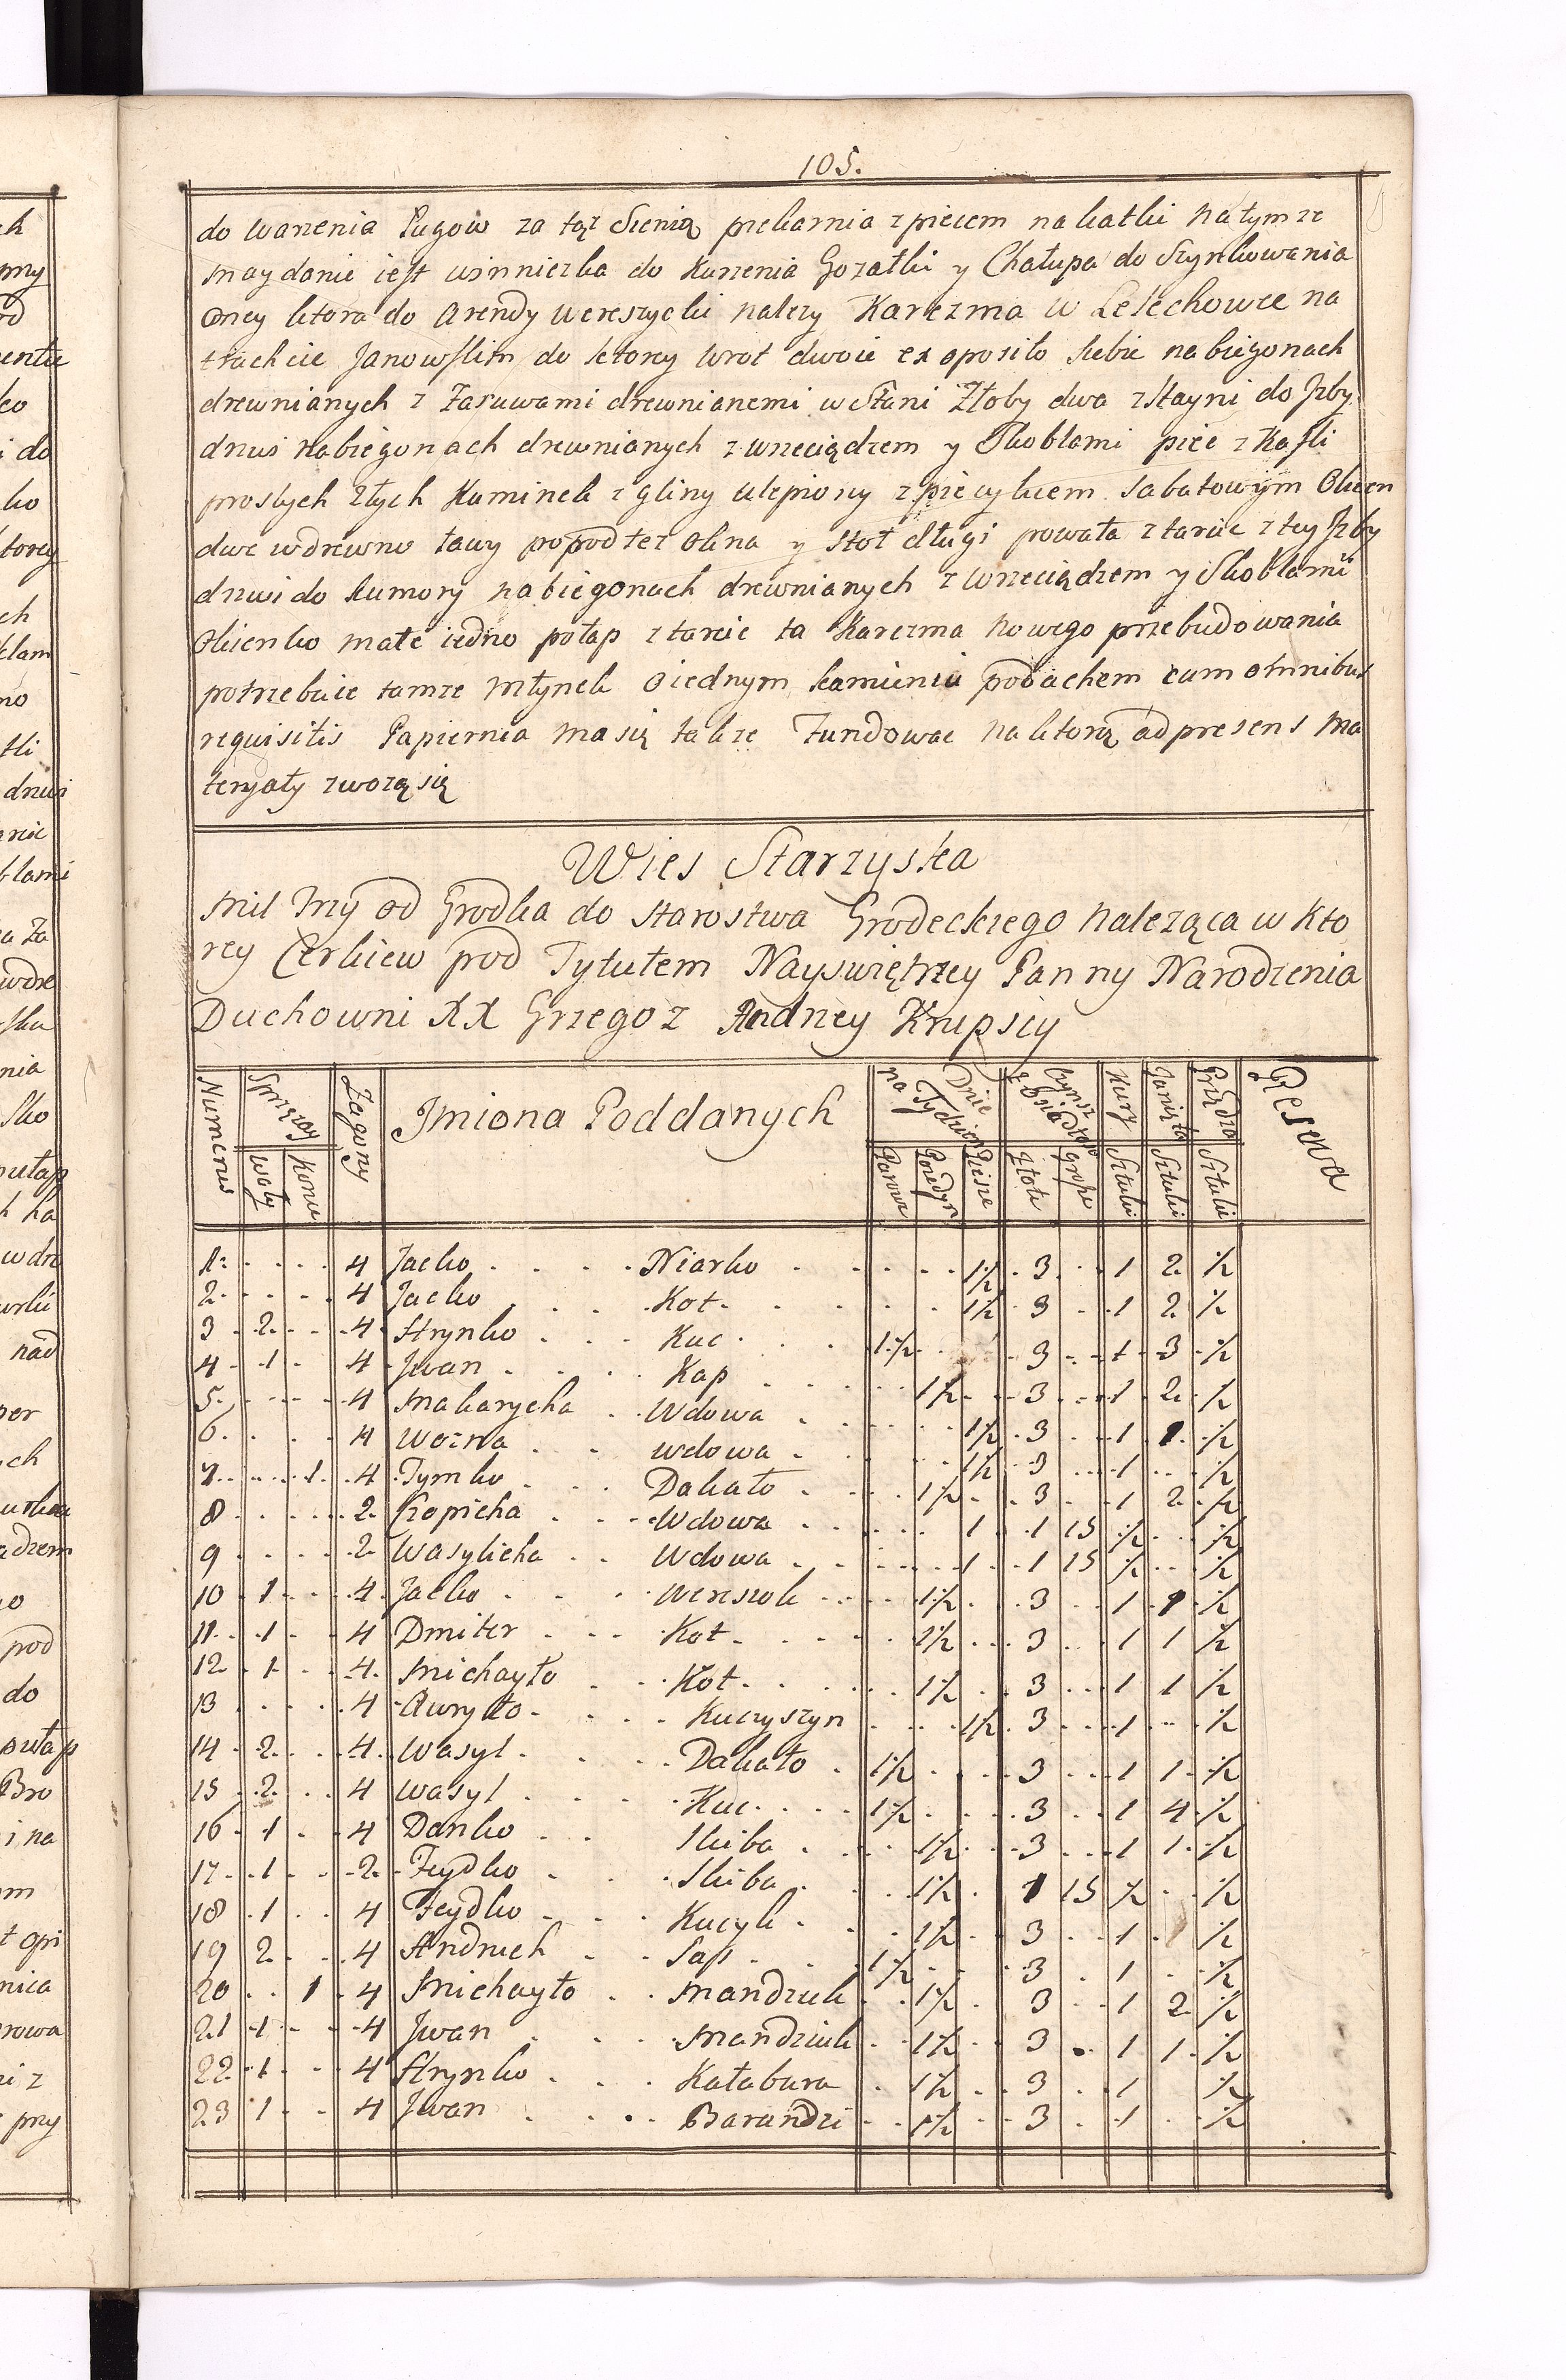 105.
do warzenia Ługow za tąż Sienią piekarnia z piecem na kałki na tym ze
maydanie iest winniczka do Kurzenia Gorzałki y Chałupa do Szynkowania
oney ktora do Arendy Wereszycki nalezy Karczma w Lelechowce na
trachcie Janowskim do ktorey wrot dwoie ex oposito siebie na biegonach
drewnianych z Zasuwami drewnianemi w Stani Złoby dwa z Stayni do Jzby
drzwi na biegonach drewnianych z wrzeciądzem y Skoblami piec z Kafli
prostych złych Kaminek z gliny ulepiony z piecykiem sabatowym Okien
dwe w drewno ławy popod też okna y stoł długi powała z tarcic z tey Jzby
drzwi do kumory na biegonach drewnianych z wrzeciądzem y Skoblami
Okienko małe iedno połap z tarcic ta Karczma nowego przebudowania
potrzebuie tamże młynek o iednym kamieniu pod dachem cum omnibus
requisitis Papiernia ma się także Fundować na ktorą ad presens ma
teryały zwozą się
Wies Starzyska
mil trzy od Grodka do starostwa Grodeckiego naleząca w Kto
rey Cerkiew pod Tytułem Nayswiętrzey Panny Narodzenia
Duchowni XX Grzegoz Andrzey Krupscy
Numerus Sprzęzay Zagony Jmiona Poddanych Dnie na Tydzien Czynsz z Osiadłego Kury Janięta Przędza Resewa
Woły Konie Parowe Poiedyn Piesze Złote grosze Sztuki Sztuki Sztuki
1. . . . 4 Jacko . . . . Niarko . . . . . 1½ . 3 . . 1 2. ½
2. . . . 4 Jacko . . . Kot . . . . 1½ . 3 . . 1 2. ½
3 . 2. . . 4 Hrynko . . . Kuc . . . 1½ . . . 3 . . 1 . 3 . ½
4 . 1 . . 4 Jwan . . . . Kap . . . . 1½ . . 3 . . 1 . 2. . ½
5. . . . 4 Makarycha . . Wdowa . . . . 1½ . 3 . . 1 . 1. . ½
6. . . . 4 Wozna . . Wdowa . . . . 1½ . 3 . . 1 . . . ½
7. . . 1. . 4 Tymko . . . Dakało . . . 1½ . . 3 . . 1 2. . ½
8 . . . . 2. Kopicha . . . Wdowa . . . . 1 . 1 15 ½ . . ½
9 . . . . 2 Wasylicha . . Wdowa . . . . 1 . 1 15 ½ . . ½
10 . 1 . . 4. Jacko . . . Wereszok . . . 1½ . . 3 . . 1 . 1 . ½
11. . 1 . . 4 Dmiter . . . Kot . . . . 1½ . . 3 . . 1 1 . ½
12. . 1. . . 4. Michayło . . Kot . . . . 1½ . . 3 . . 1 1 . ½
13 . . . . 4 Awryło . . . Kuczyszyn . . . 1½ . 3 . . 1 . . . ½
14 . 2. . . 4. Wasyl . . . Dakało . 1½ . . . 3 . . 1 1. . ½
15 . 2. . . 4 Wasyl . . . Kuc . . . 1½ . . . 3 . . 1 4 . ½
16 . 1 . . 4 Danko . . Skiba . . . 1½ . . 3 . . 1 1. . ½
17 . 1 . . 2. Feydko . . Skiba . . . 1½ . 1 15 ½ . . ½
18 . 1 . . 4 Feydko . . . Kucyk . . . 1½ . . 3 . 1 . . ½
19 . 2 . . 4 Andruch . . Sap . . 1½ . . . 3 . 1 . . ½
20 . . 1 . 4 Michayło . . Mandziuk . . 1½ . 3 . . 1 2. ½
21 . 1 . . 4 Jwan . . . Mandziuk . . 1½ . . 3 . 1 1. . ½
22. . 1 . . 4 Hrynko . . . Kałabura . 1½ . . 3 . 1 ½
23 1 . . 4 Jwan . . . Barandzi . . 1½ . . 3 . 1 . . ½